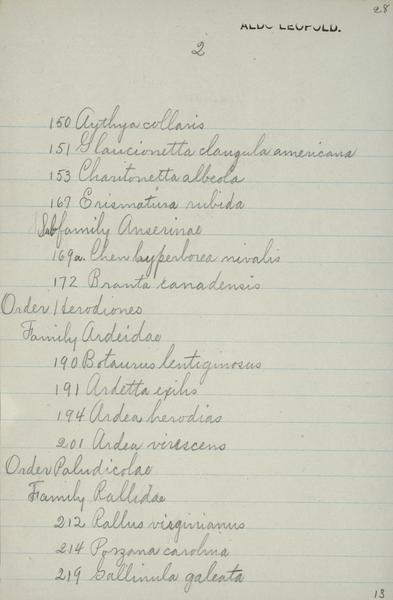 28
ALDO LEOPOLD.
2
150 Aythya collaris
151 Glaucionetta clangula americana
153 Charitonetta albeola
167 Erismatura rubida
Subfamily Anserinae
169a. Chen hyperborea nivalis
172 Branta canadensis
Order Herodiones
Family Ardeidae
190 Botaurus lentiginosus
191 Ardetta exilis
194 Ardea herodias
201 Ardea virescens
Order Paludicolae
Family Rallidae
212 Rallus virginianus
214 Porzana carolina
219 Gallinula galeata
13